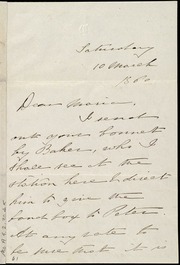 Saturday
10 March
1860
Dear Maria,
I send
out your bonnet
by Baker, who I
shall see at the
station here & direct
him to give the
band box to Peter.
At any rate to
be sure that it is